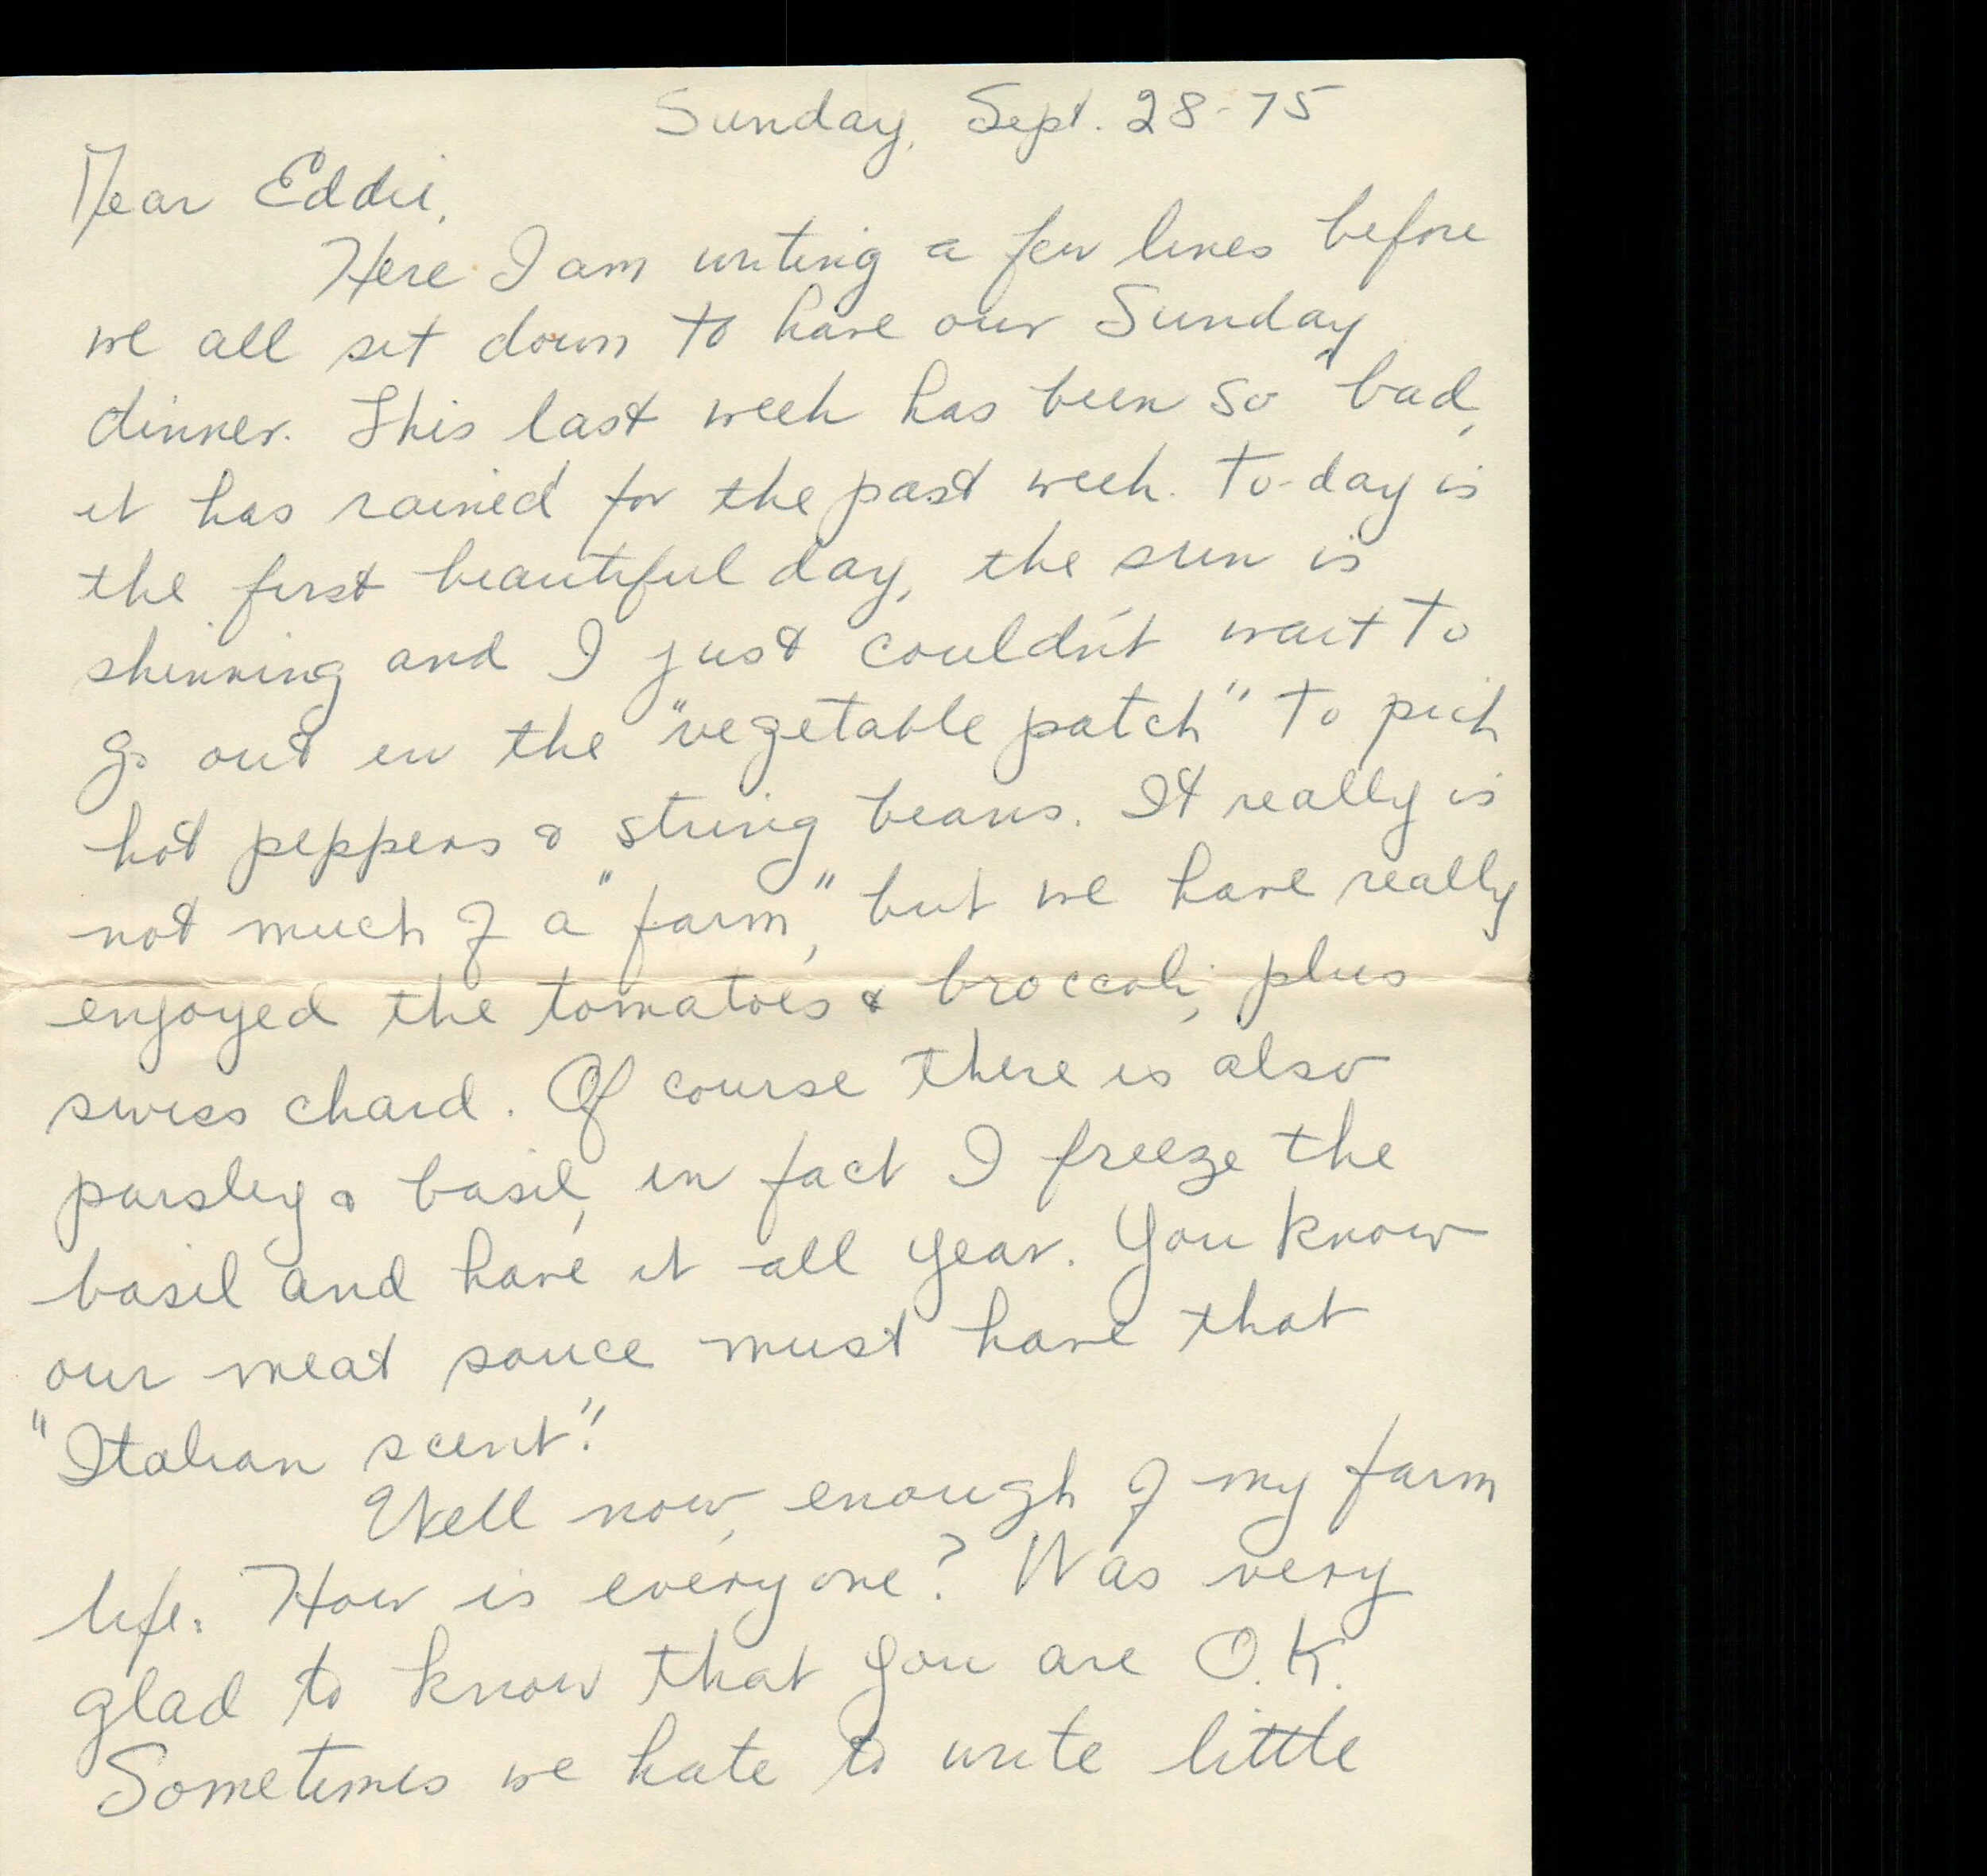 Sunday, Sept. 28-75
Dear Eddie,
Here I am writing a few lines before
we all set down to have our Sunday
dinner. This last week has been so bad,
it has rained for the past week. To-day is
the first beautiful day, the sun is
shinning and I just couldn't wait to
go out in the "vegetable patch" to pick
hot peppers & string beans. It really is
not much of a "farm," but we have really
enjoyed the tomatoes & broccoli, plus
swiss chard. Of course there is also
parsley & basil, in fact I freeze the
basil and have it all year. You know
our meat sauce must have that
"Italian scent".
Well now, enough of my farm
life. How is everyone? Was very
glad to know that you are O.K.
Sometimes we hate to write little